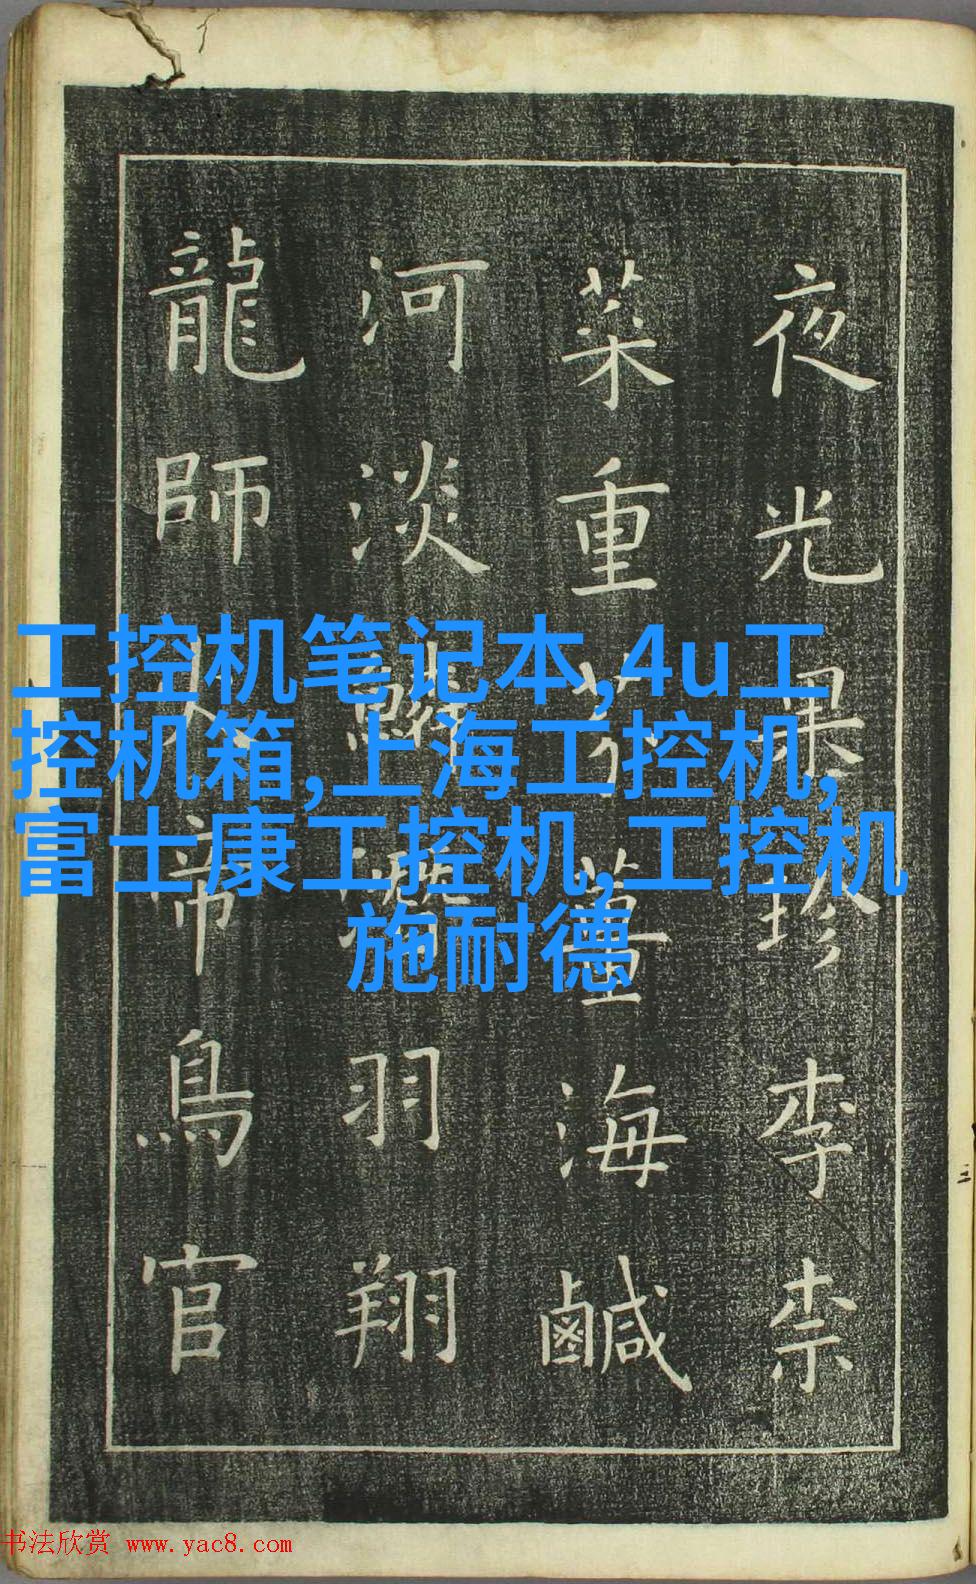 夜光果珍李柰
菜重芥薑海鹹
河淡鱗羽翔
龍師帝鳥官
工控机笔记本,4u工
控机箱,上海工控机,
富士康工控机,工控机
施耐德
书法欣赏 www.yac8.com